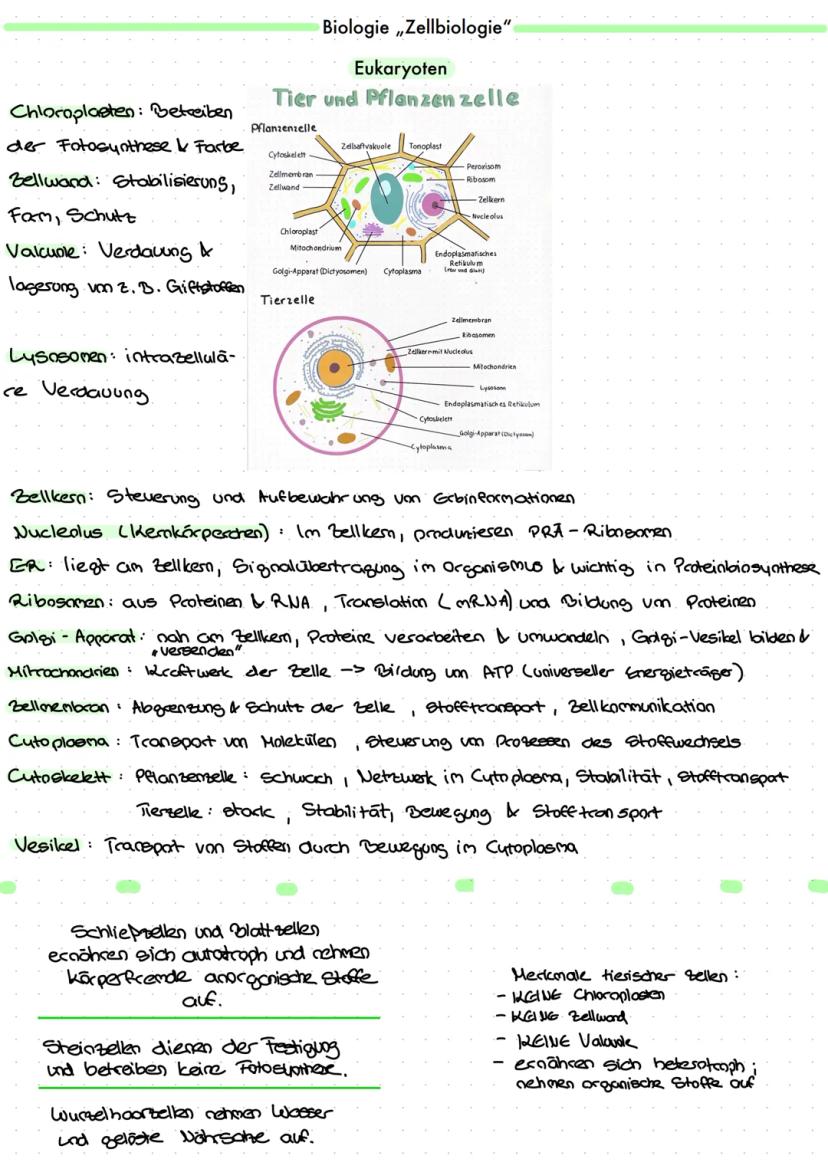 Biologie „Zellbiologie“
Eukaryoten
Chloroplasten: Betreiben
der Fotosynthese & Farbe
Zellwand: Stabilisierung,
Form, Schutz
Vakuole: Verdauung &
lagerung von z. B. Giftstoffen
Lysosomen: intrazellulä-
re Verdauung
Tier und Pflanzenzelle
Pflanzenzelle
Zellsaftvakuole
Tonoplast
Cytoskelett
Peroxisom
Zellmembran
Ribosom
Zellwand
Zellkern
Nucleolus
Chloroplast
Mitochondrium
Endoplasmatisches
Retikulum
(rau und glatt)
Golgi-Apparat (Dictyosomen)
Cytoplasma
Tierzelle
Zellmembran
Ribosomen
Zellkern mit Nucleolus
Mitochondrien
Lysosom
Endoplasmatisches Retikulum
Cytoskelett
Golgi-Apparat (Dictyosom)
Cytoplasma
Zellkern: Steuerung und Aufbewahrung von Erbinformationen
Nucleolus (Kernkörperchen): Im Zellkern, produzieren PRÄ-Ribosomen
ER: liegt am Zellkern, Signalübertragung im Organismus & wichtig in Proteinbiosynthese
Ribosomen: aus Proteinen & RNA, Translation (mRNA) und Bildung von Proteinen
Golgi-Apparat: nah am Zellkern, Proteine verarbeiten & umwandeln, Golgi-Vesikel bilden &
„versenden“
Mitrochondrien: Kraftwerk der Zelle -> Bildung von ATP (universeller Energieträger)
Zellmembran: Abgrenzung & Schutz der Zelle, Stofftransport, Zellkommunikation
Cytoplasma: Transport von Molekülen, Steuerung von Prozessen des Stoffwechsels
Cytoskelett: Pflanzenzelle: schwach, Netzwerk im Cytoplasma, Stabilität, Stofftransport
Tierzelle: stark, Stabilität, Bewegung & Stofftransport
Vesikel: Transport von Stoffen durch Bewegung im Cytoplasma
Schließzellen und Blattzellen
ernähren sich autotroph und nehmen
körperfremde anorganische Stoffe
auf.
Steinzellen dienen der Festigung
und betreiben keine Fotosynthese.
Wurzelhaarzellen nehmen Wasser
und gelöste Nährsalze auf.
Merkmale tierischer Zellen:
- KEINE Chloroplasten
- KEINE Zellwand
- KEINE Vakuole
- ernähren sich heterotroph;
nehmen organische Stoffe auf